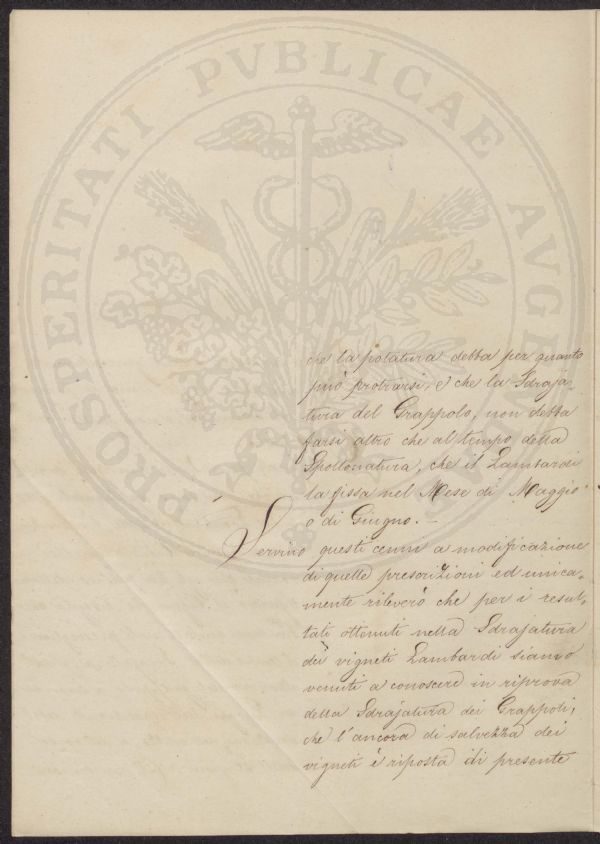 PROSPERITATI PVBLICAE AVGENDAE
che la potatura debba per quanto
può protrarsi, e che la Sdraja-
tura del Grappolo, non debba
farsi altro che al tempo della
Spollonatura, che il Lambardi
la fissa nel Mese di Maggio
o di Giugno. —
Servino questi cenni a modificazione
di quelle prescrizioni ed unica-
mente rileverò che per i resul-
tati ottenuti nella Sdrajatura
dei vigneti Lambardi siamo
venuti a conoscere in riprova
della Sdrajatura dei Grappoli,
che l'ancora di salvezza dei
vigneti è riposta di presente